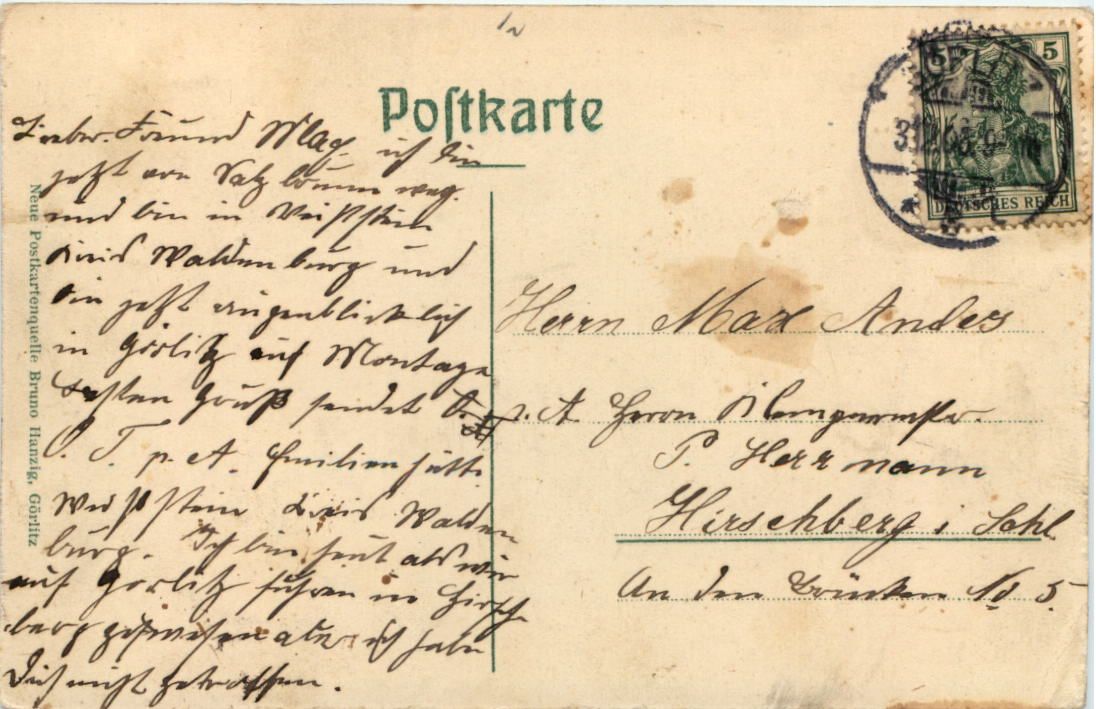 Postkarte
Lieber Freund Max. ich bin
jetzt von Salzbrunn weg.
und bin in Weißstein
Kreis Waldenburg und
bin jetzt augenblicklich
in Görlitz auf Montage
besten Gruß sendet
P. T. p. A. Emilienhütte
Weißstein Kreis Walden
burg. Ich bin heut als wir
auf Görlitz fuhren in Hirsch
berg gewesen aber ich habe
Dich nicht getroffen.
Neue Postkartenquelle Bruno Hanzig, Görlitz
5 5
DEUTSCHES REICH
Herrn Max Anders
p. A. Herrn Klempnermstr.
P. Herrmann
Hirschberg i Schl.
An den Brücken No 5